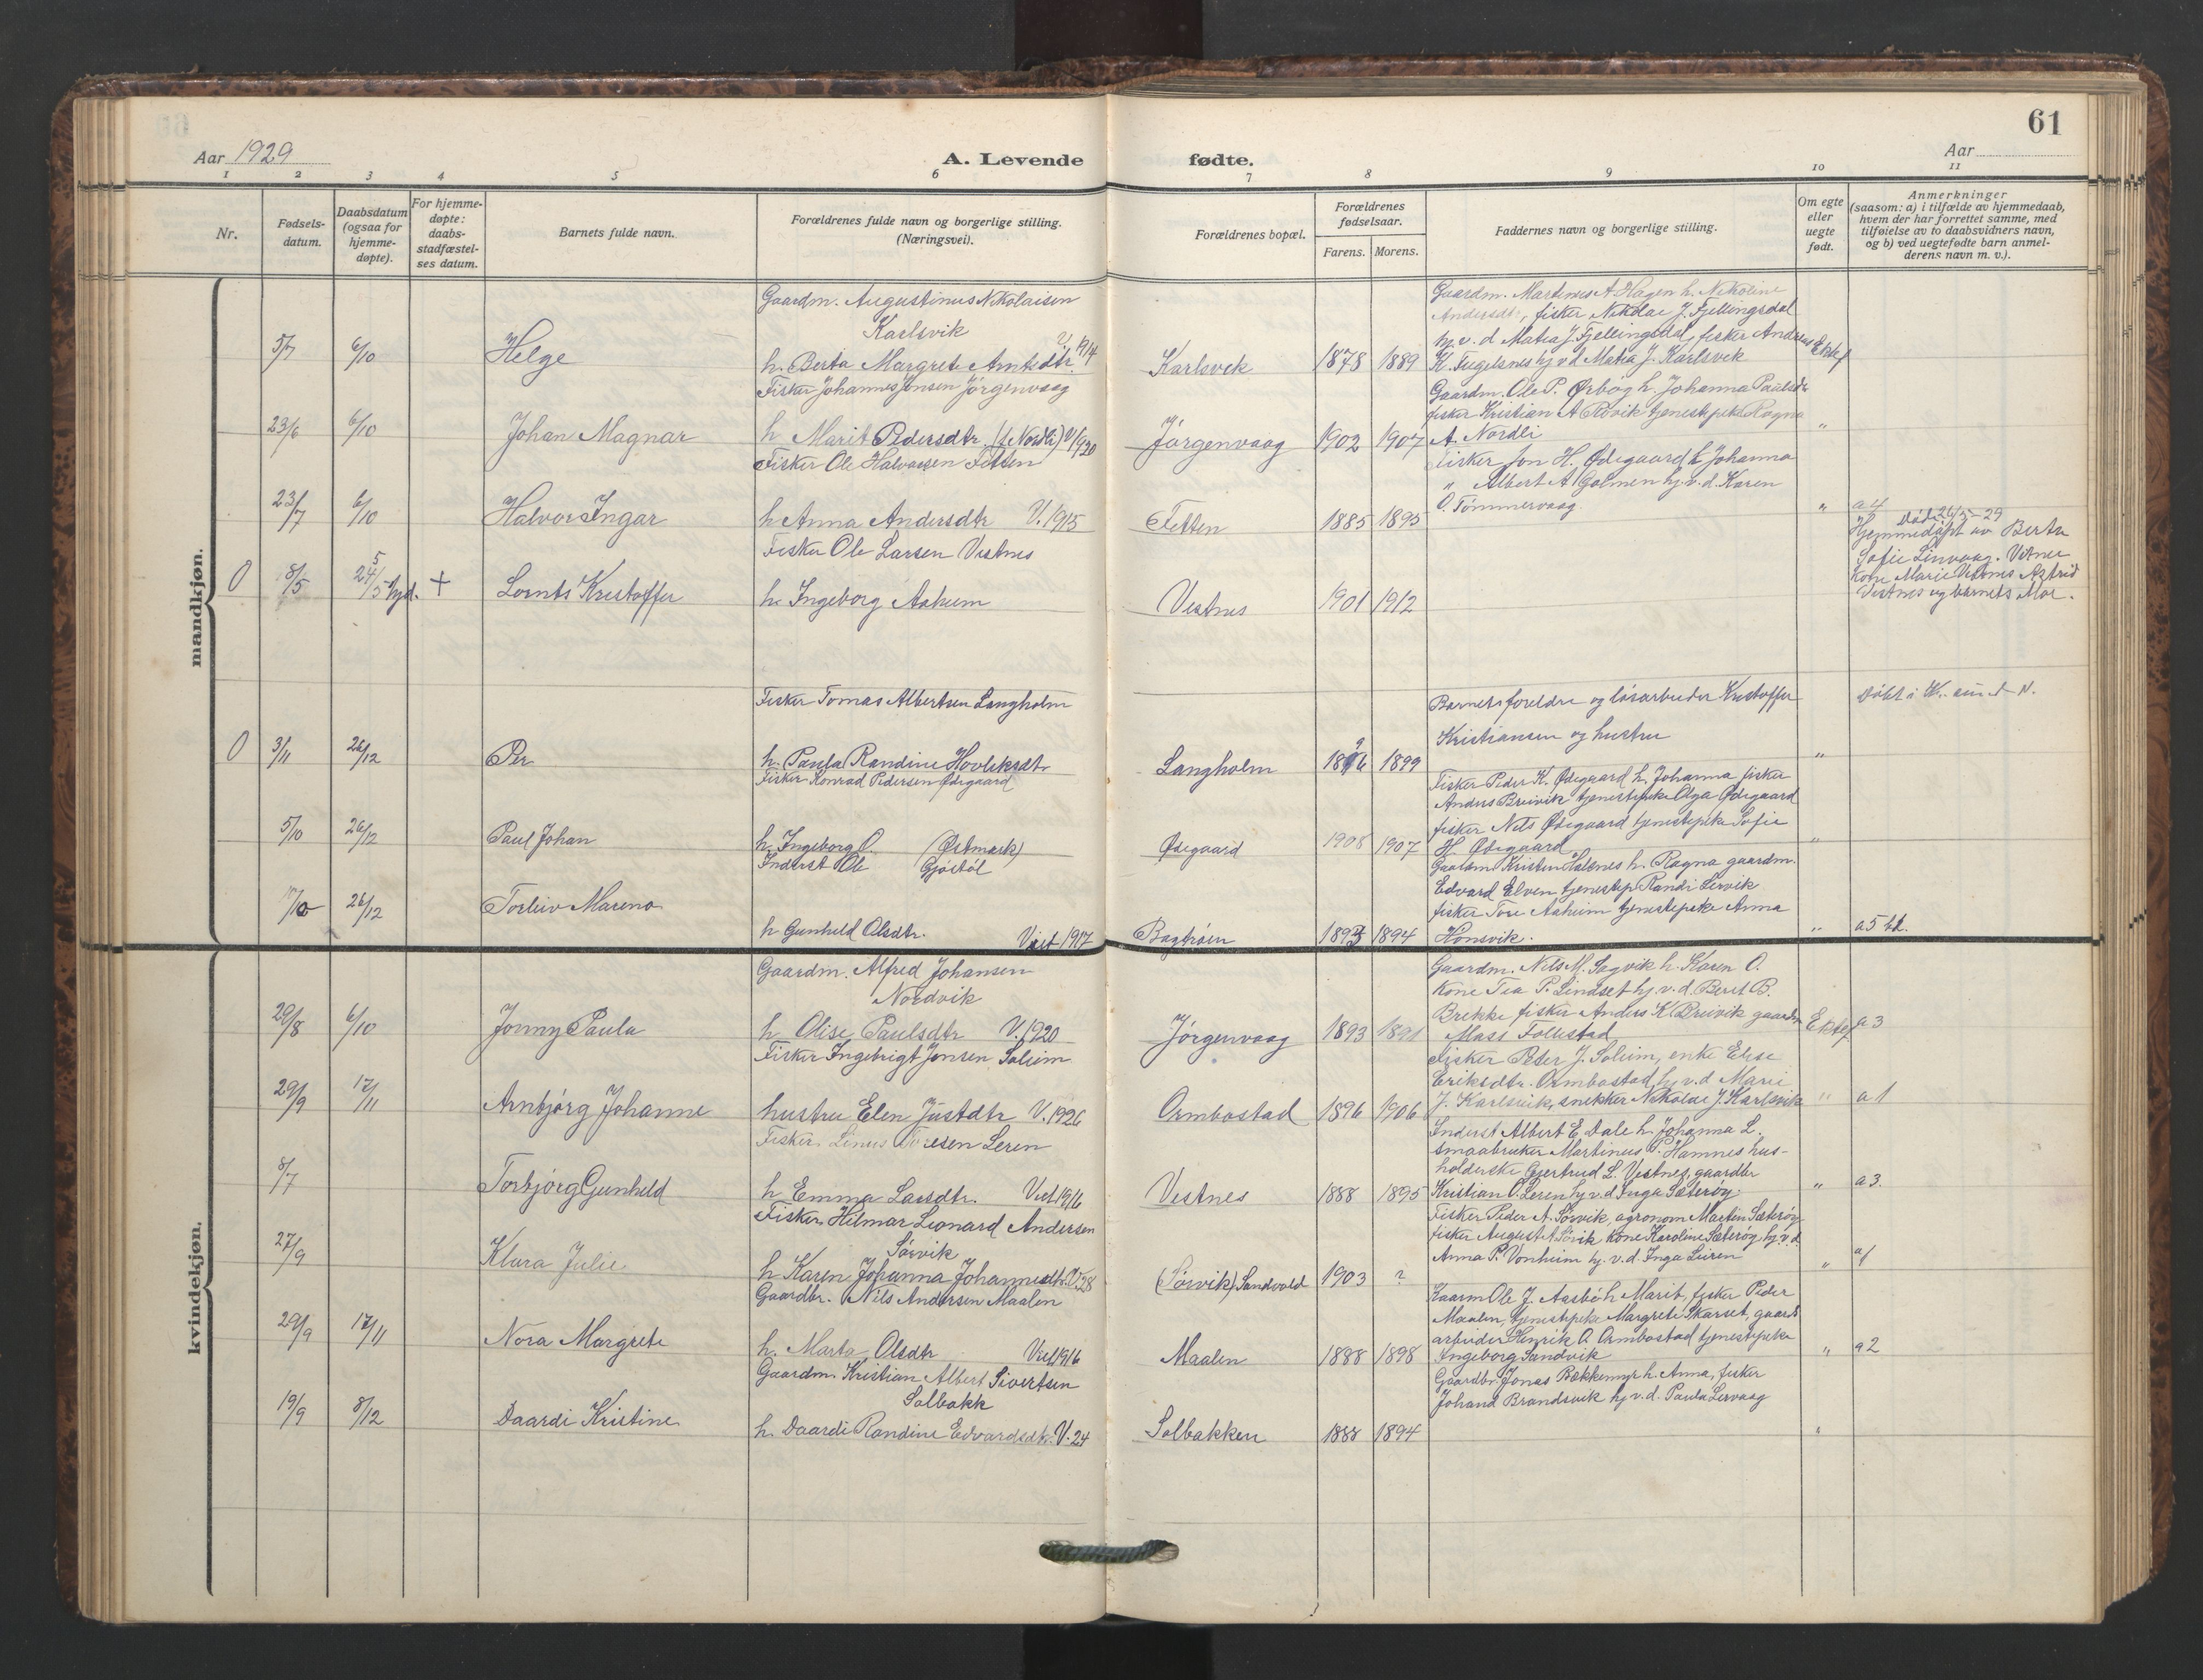 61
Aar 1929
A. Levende
fødte.
Aar
1 2 3 4 5 6 7 8 9 10 11
Nr.
Fødsels-
datum.
Daabsdatum
(ogsaa for
hjemme-
døpte).
For hjemme-
døpte:
daabs-
stadfæstel-
ses datum.
Barnets fulde navn.
Forældrenes fulde navn og borgerlige stilling.
(Næringsvei).
Forældrenes bopæl.
Forældrenes
fødselsaar.
Farens. Morens.
Faddernes navn og borgerlige stilling.
Om egte
eller
uegte
født.
Anmerkninger
(saasom: a) i tilfælde av hjemmedaab,
hvem der har forrettet samme, med
tilføielse av to daabsvidners navn,
og b) ved uegtefødte barn anmel-
derens navn m. v.).
mandkjøn.
Gaardm. Augustinus Nikolaisen
Karlsvik
5/7 6/10 Helge
h. Berta Margrete Arntsdtr. V. 1914
Karlsvik 1878 1889
Gaardm. Martinus A Hagen h. Nikoline
Andersdtr, fisker Nikolai J. Fjellingsdal
hj. v. d Matea J. Fjellingsdal, fisker Andreas
K. Fugelsnes hj v d Matea J. Karlsvik
Ektef
Fisker Johannes Jensen Jørgenvaag
23/6 6/10 Johan Magnar
h Marit Pedersdtr. (f. Nordli) V 1920
Jørgenvaag 1902 1907
Gaardm. Ole P. Ørbøg h. Johanna Paalsdtr
fisker Kristian A Rovik tjenestepike Ragna
A. Nordli
"
Fisker Ole Halvorsen Fetten
23/7 6/10 Halvor Ingar
h Anna Andersdtr V. 1915
Fetten 1885 1895
Fisker Jon H. Ødegaard h Johanna
" Albert A Golmen hj. v. d. Karen
O. Tømmervaag
" a 4
Fisker Ole Larsen Vestnes
0 8/5 24/5 hjd. + Lornts Kristoffer
h. Ingeborg Aaheim
Vestnes 1901 1912
Død 26/5-29
Hjemmedøpt av Berta
Sofie Linvaag. Vitner
Kone Marie Vestnes Astrid
Vestnes og barnets Mor.
Fisker Tomas Albertsen Langholm
0 3/11 26/12 Per
h. Paula Randine Hovleksdtr
Langholm 1896 1899
Barnets foreldre og løsarbeider Kristoffer
Kristiansen og hustru
"
Døbt i Kr. sund N.
Fisker Konrad Pedersen Ødegaard
5/10 26/12 Paul Johan
h. Ingeborg O. (Østmark)
Ødegaard 1908 1907
Fisker Peder K. Ødegaard h. Johanna fisker
Anders Breivik tjenestepike Olga Ødegaard
fisker Nels Ødegaard tjenestepike Sofie
H. Ødegaard
"
Inderst Ole Gjøstøl
17/10 26/12 Torleiv Mareno
h Gunhild Olsdtr. Viet 1917
Bogtrøen 1893 1894
Gaardm Kristen Halsnes h. Ragna gaardm.
Edvard Elven tjenestep. Randi Lervik
fisker Tore Aaheim tjenestepike Anna
Honsvik.
" a 5 bl.
kvindekjøn.
Gaardm. Alfred Johansen
Nordvik
29/8 6/10 Jonny Paula
h Olise Paulsdtr V. 1920
Jørgenvaag 1893 1891
Gaardm. Nils M. Sagvik h. Karen O.
Kone Tea P. Lindset hj. v. d. Beret B.
Brekke fisker Anders K Breivik gaardm
Mass Follestad
Ektef a 3
Fisker Ingebrigt Jensen Soleim
29/9 17/11 Arnbjørg Johanne
hustru Elen Justdtr V. 1926
Ormbostad 1896 1906
Fisker Peder J. Soleim, enke Elise
Eriksdtr. Ormbostad hj v. d Marie
J. Karlsvik, snekker Nikolai J. Karlsvik
" a 1
Fisker Linus Toresen Leren
8/7 Torbjørg Gunheld
h Emma Larsdtr. Viet 1916
Vestnes 1888 1895
Inderst Albert E Dale h. Johanna L.
Smaabruker Martinus P. Hamnes hus-
holderske Gjertrud L. Vestnes, gaardbr
Kristian O. Leren hj v. d Inga Sæterøy.
" a 3.
Fisker Hilmar Leonard Andersen
Sørvik
27/9 Klara Julie
h Karen Johanna Johannesdtr. V. 28
(Sørvik) Sandvold 1903 ?
Fisker Peder A. Sørvik, agronom Martin Sæterøy
fisker August A Sørvik Kone Karoline Sæterøy hj. v. d.
Anna P. Vonheim hj. v. d. Inga Leiren
" a 1
Gaardbr. Nils Andersen Maalen
29/9 17/11 Nora Margrete
h. Marta Olsdtr Viet 1916
Maalen 1888 1898
Kaarm Ole J. Aasbø h Marit, fisker Peder
Maalen, tjenestepike Margrete Skarset, gaards
arbeider Henrik O. Ormbostad tjenestepike
Ingeborg Sandvik
" a 2
Gaardm. Kristian Albert Sivertsen
Solbakk
19/9 8/12 Daardi Kristine
h. Daardi Randine Edvardsdtr. V. 24
Solbakken 1888 1894
Gaardbr Jonas Bækkemyr h. Anna, fisker
Johand Brandsvik hj v. d. Paula Lervaag
"